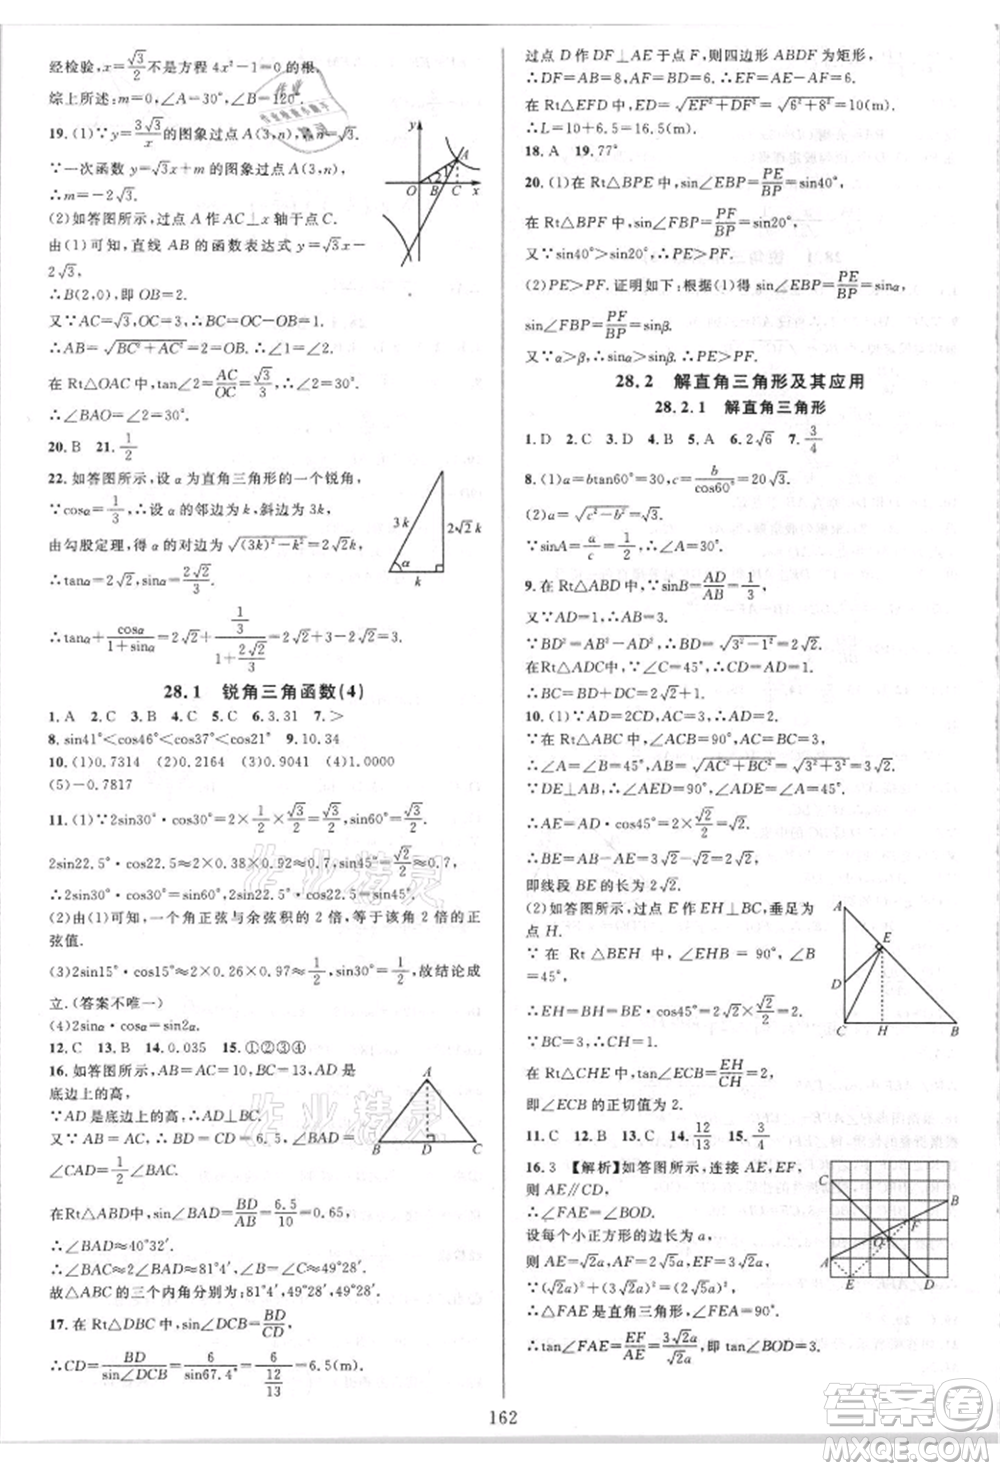 经检验，x=√3/2不是方程4x²-1=0的根。
综上所述：m=0，∠A=30°，∠B=120°.
19. (1)∵y=3√3/x的图象过点A(3,n)，∴n=√3.
∵一次函数y=√3x+m的图象过点A(3,n)，
∴m=-2√3.
(2)如答图所示，过点A作AC⊥x轴于点C.
由(1)可知，直线AB的函数表达式y=√3x-
2√3.
∴B(2,0)，即OB=2.
又∵AC=√3，OC=3，∴BC=1.
∴AB=√(BC²+AC²)=2=OB，∴∠1=∠2.
在Rt△OAC中，tan∠2=AC/OC=√3/3，∴∠2=30°.
∴∠BAO=∠2=30°.
20. B 21. 1/2
22. 如答图所示，设α为直角三角形的一个锐角，
∵cosα=1/3，∴设α的邻边为k，斜边为3k，
由勾股定理，得α的对边为√((3k)²-k²)=2√2k.
∴tanα=2√2，sinα=2√2/3.
∴tanα+cosα/(1+sinα)=2√2+(1/3)/(1+2√2/3)=2√2+3-2√2=3.
28.1 锐角三角函数(4)
1. A 2. C 3. B 4. C 5. C 6. 3.31 7. >
8. sin41°<cos46°<cos37°<cos21° 9. 10.34
10. (1)0.7314 (2)0.2164 (3)0.9041 (4)1.0000
(5)-0.7817
11. (1)∵2sin30°·cos30°=2×1/2×√3/2=√3/2，sin60°=√3/2.
2sin22.5°·cos22.5°≈2×0.38×0.92≈0.7，sin45°=√2/2≈0.7，
∴2sin30°·cos30°=sin60°，2sin22.5°·cos22.5°≈sin45°.
(2)由(1)可知，一个角正弦与余弦积的2倍，等于该角2倍的正
弦值.
(3)2sin15°·cos15°≈2×0.26×0.97≈1/2，sin30°=1/2，故结论成
立.(答案不唯一)
(4)2sinα·cosα=sin2α.
12. C 13. B 14. 0.035 15. ①②③④
16. 如答图所示，AB=AC=10，BC=13，AD是
底边上的高，
∵AD是底边上的高，∴AD⊥BC.
又∵AB=AC，∴BD=CD=6.5，∠BAD=
∠CAD=1/2∠BAC.
在Rt△ABD中，sin∠BAD=BD/AB=6.5/10=0.65，
∴∠BAD≈40°32′.
∴∠BAC≈81°4′，∠B=∠C≈49°28′.
故△ABC的三个内角分别为：81°4′，49°28′，49°28′.
17. 在Rt△DBC中，sin∠DCB=BD/CD，
∴CD=BD/sin∠DCB=6/sin67.4°=6/(12/13)=6.5(m).
过点D作DF⊥AE于点F，则四边形ABDF为矩形，
∴DF=AB=8，AF=BD=6，∴EF=AE-AF=6.
在Rt△EFD中，ED=√(EF²+DF²)=√(6²+8²)=10(m).
∴L=10+6.5=16.5(m).
18. A 19. 77°
20. (1)在Rt△BPE中，sin∠EBP=PE/BP=sin40°，
在Rt△BPF中，sin∠FBP=PF/BP=sin20°.
又∵sin40°>sin20°，∴PE>PF.
(2)PE>PF. 证明如下：根据(1)得sin∠EBP=PE/BP=sinα，
sin∠FBP=PF/BP=sinβ.
又∵α>β，∴sinα>sinβ. ∴PE>PF.
28.2 解直角三角形及其应用
28.2.1 解直角三角形
1. D 2. C 3. D 4. B 5. A 6. 2√6 7. 3/4
8. (1)a=btan60°=30，c=b/cos60°=20√3.
(2)a=√(c²-b²)=10.
∵sinA=a/c=1/2，∴∠A=30°.
9. 在Rt△ABD中，∵sinB=AD/AB=1/3，
又∵AD=1，∴AB=3.
∵BD²=AB²-AD²，∴BD=√(3²-1²)=2√2.
在Rt△ADC中，∵∠C=45°，∴CD=AD=1.
∴BC=BD+CD=2√2+1.
10. (1)∵AD=2CD，AC=3，∴AD=2.
∵在Rt△ABC中，∠ACB=90°，AC=BC=3，
∴∠A=∠B=45°，AB=√(AC²+BC²)=√(3²+3²)=3√2.
∵DE⊥AB，∴∠AED=90°，∠ADE=∠A=45°.
∴AE=AD·cos45°=2×√2/2=√2.
∴BE=AB-AE=3√2-√2=2√2，
即线段BE的长为2√2.
(2)如答图所示，过点E作EH⊥BC，垂足为
点H.
∵在Rt△BEH中，∠EHB=90°，∠B
=45°，
∴EH=BH=BE·cos45°=2√2×√2/2=2.
又∵BC=3，∴CH=1.
在Rt△CHE中，tan∠ECB=EH/CH=2，
即∠ECB的正切值为2.
11. C 12. B 13. C 14. 12/13 15. 3/4
16. 3 【解析】如答图所示，连接AE，EF，
则AE∥CD，
∴∠FAE=∠BOD.
设每个小正方形的边长为a，
则AE=√2a，AF=2√5a，EF=3√2a，
∵(√2a)²+(3√2a)²=(2√5a)²，
∴△FAE是直角三角形，∠FEA=90°.
∴tan∠FAE=EF/AE=3√2a/√2a，即tan∠BOD=3.
162
答案圈
MXQE.COM